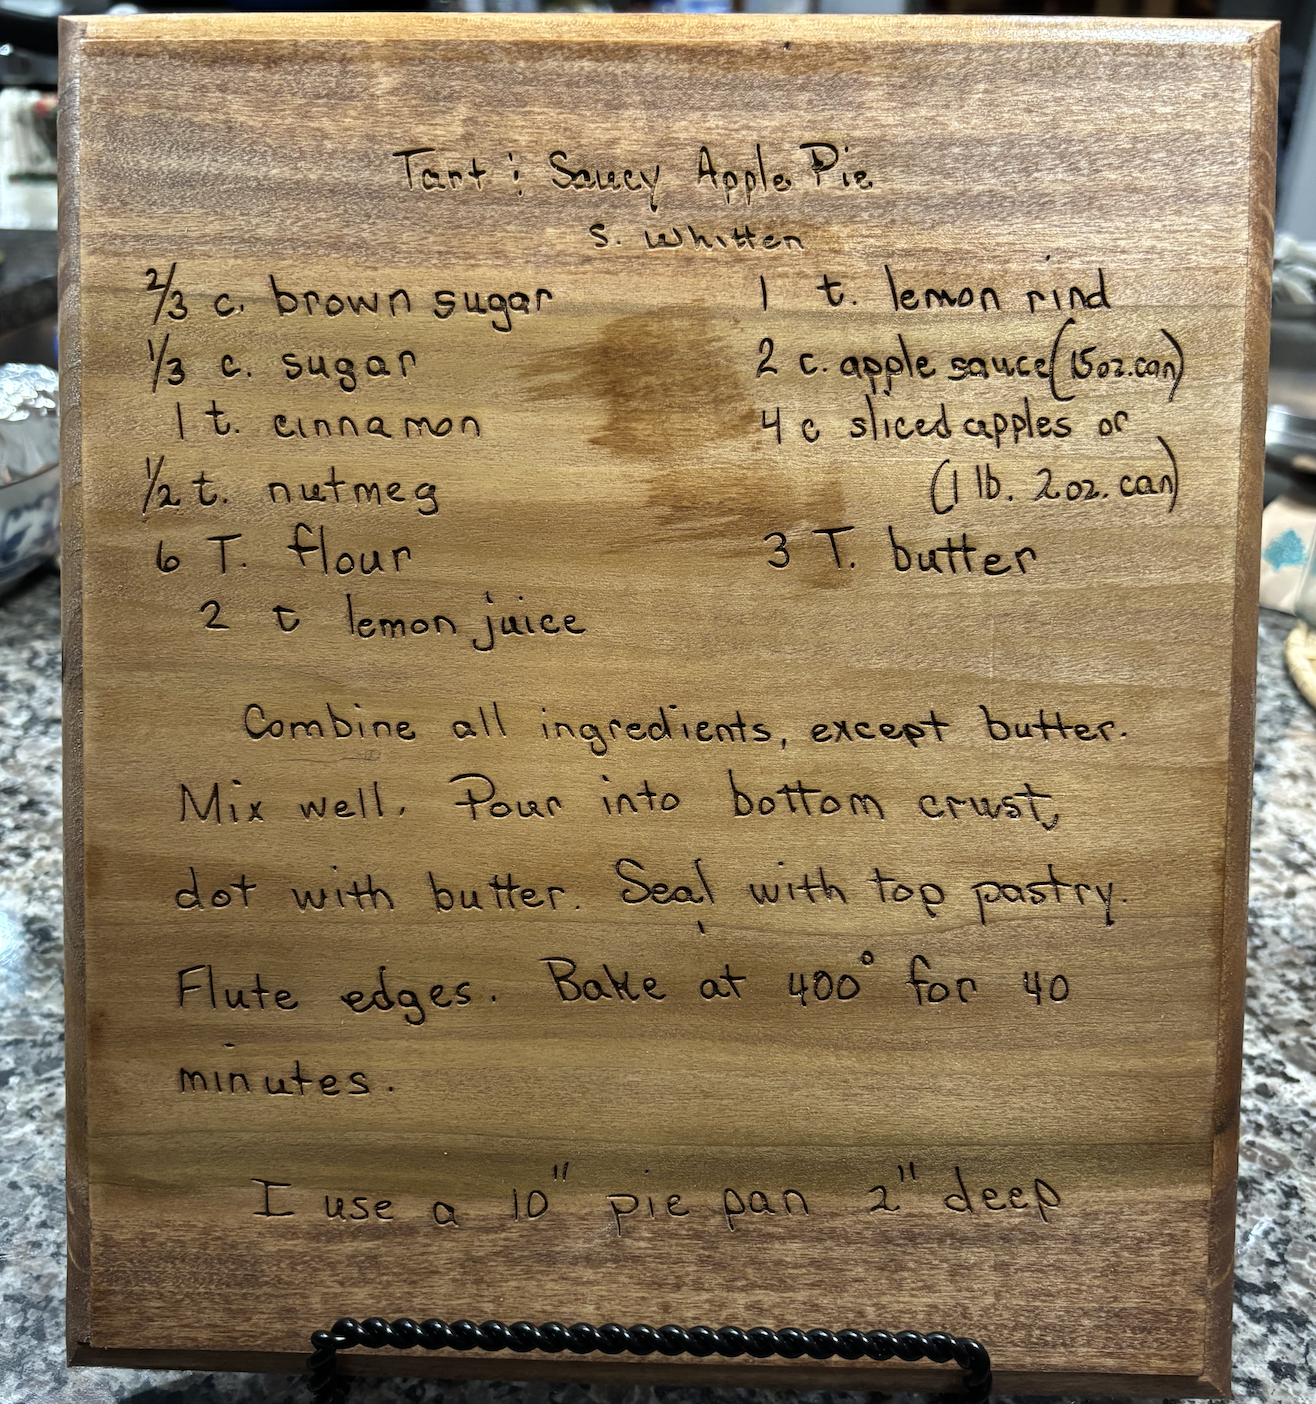 Tant & Saucy Apple Pie
S. Whitten
2/3 c. brown sugar
1/3 c. sugar
1 t. cinnamon
1/2 t. nutmeg
6 T. flour
2 t lemon juice
1 t. lemon rind
2 c. apple sauce (15oz.can)
4 c sliced apples or
(1 lb. 2oz. can)
3 T. butter
Combine all ingredients, except butter.
Mix well. Pour into bottom crust,
dot with butter. Seal with top pastry.
Flute edges. Bake at 400° for 40
minutes.
I use a 10" pie pan 2" deep